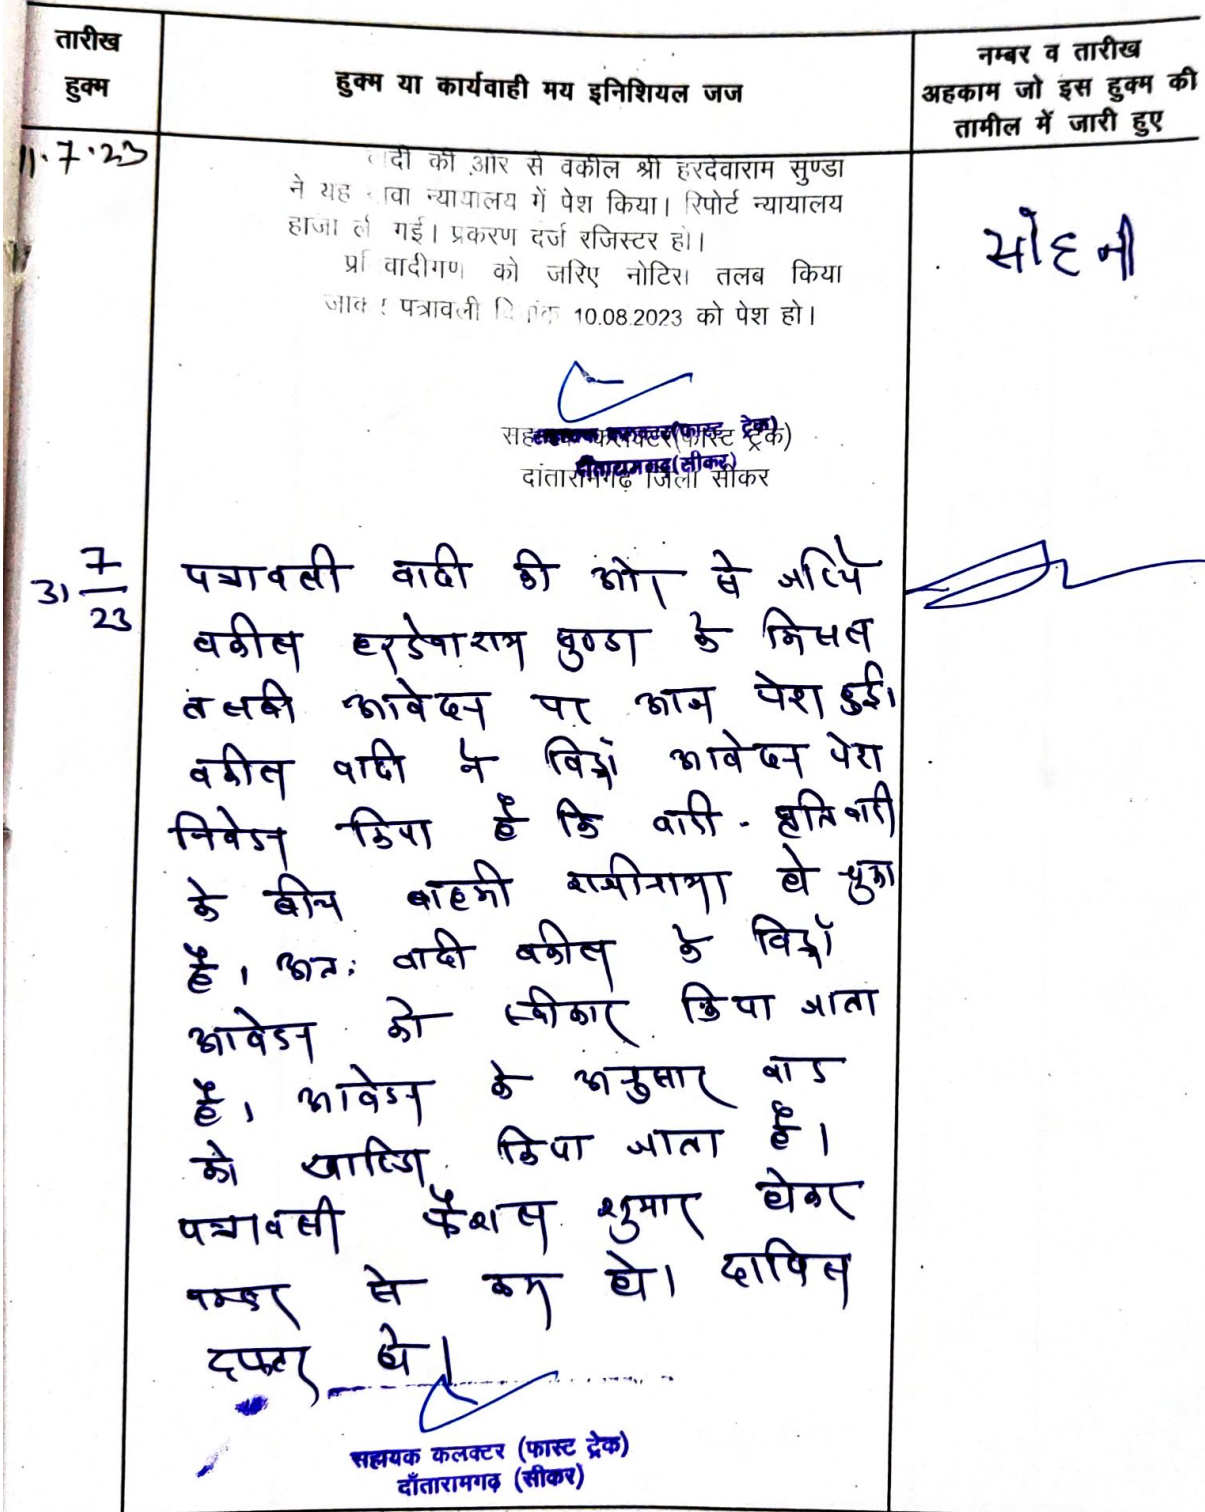 तारीख
हुक्म
हुक्म या कार्यवाही मय इनिशियल जज
नम्बर व तारीख
अहकाम जो इस हुक्म की
तामील में जारी हुए
11.7.23
वादी की ओर से वकील श्री हरदेवाराम सुण्डा
ने यह दावा न्यायालय में पेश किया। रिपोर्ट न्यायालय
हाजा ली गई। प्रकरण दर्ज रजिस्टर हो।
प्रतिवादीगण को जरिए नोटिस तलब किया
जाकर पत्रावली दिनांक 10.08.2023 को पेश हो।
सोहनी
सहायक कलक्टर(फास्ट ट्रेक)
दांतारामगढ़ जिला सीकर
सहायक कलक्टर(फास्ट ट्रेक)
दाँतारामगढ़(सीकर)
31 7/23
पत्रावली वादी की ओर से जरिये
वकील हरदेवाराम सुण्डा के मिसल
तलबी आवेदन पर आज पेश हुई।
वकील वादी ने विड्रॉ आवेदन पेश
निवेदन किया है कि वादी - प्रतिवादी
के बीच बाहमी राजीनामा हो चुका
है। अतः वादी वकील के विड्रॉ
आवेदन को स्वीकार किया जाता
है। आवेदन के अनुसार वाद
को खारिज किया जाता है।
पत्रावली फैशल शुमार होकर
नम्बर से कम हो। दाखिल
दफ्तर हो।
सहायक कलक्टर (फास्ट ट्रेक)
दाँतारामगढ़ (सीकर)